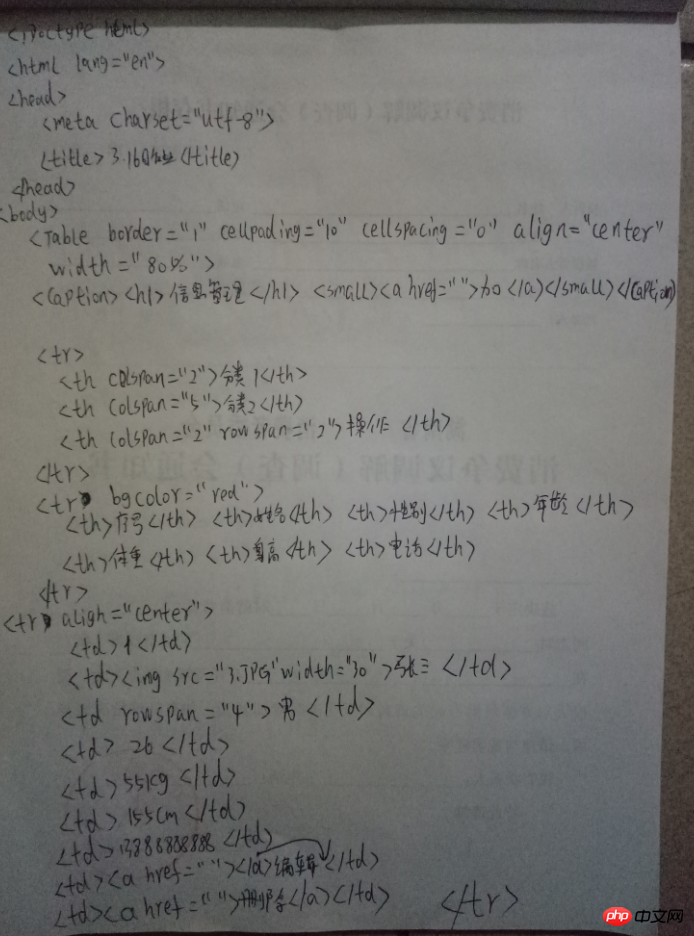 <!Doctype html>
<html lang="en">
<head>
<meta charset="utf-8">
<title>3.16作业</title>
</head>
<body>
<Table border="1" cellpading="10" cellspacing="0" align="center"
width="80%">
<Caption><h1>信息管理</h1> <small><a href="">添加</a></small></Caption>
<tr>
<th colspan="2">分类1</th>
<th colspan="5">分类2</th>
<th colspan="2" rowspan="2">操作</th>
</tr>
<tr bgcolor="red">
<th>序号</th> <th>姓名</th> <th>性别</th> <th>年龄</th>
<th>体重</th> <th>身高</th> <th>电话</th>
</tr>
<tr align="center">
<td>1</td>
<td><img src="3.JPG" width="30">张三</td>
<td rowspan="4">男</td>
<td>26</td>
<td>55kg</td>
<td>155cm</td>
<td>13888888888</td>
<td><a href=""></a>编辑</td>
<td><a href="">删除</a></td> </tr>
php中文网